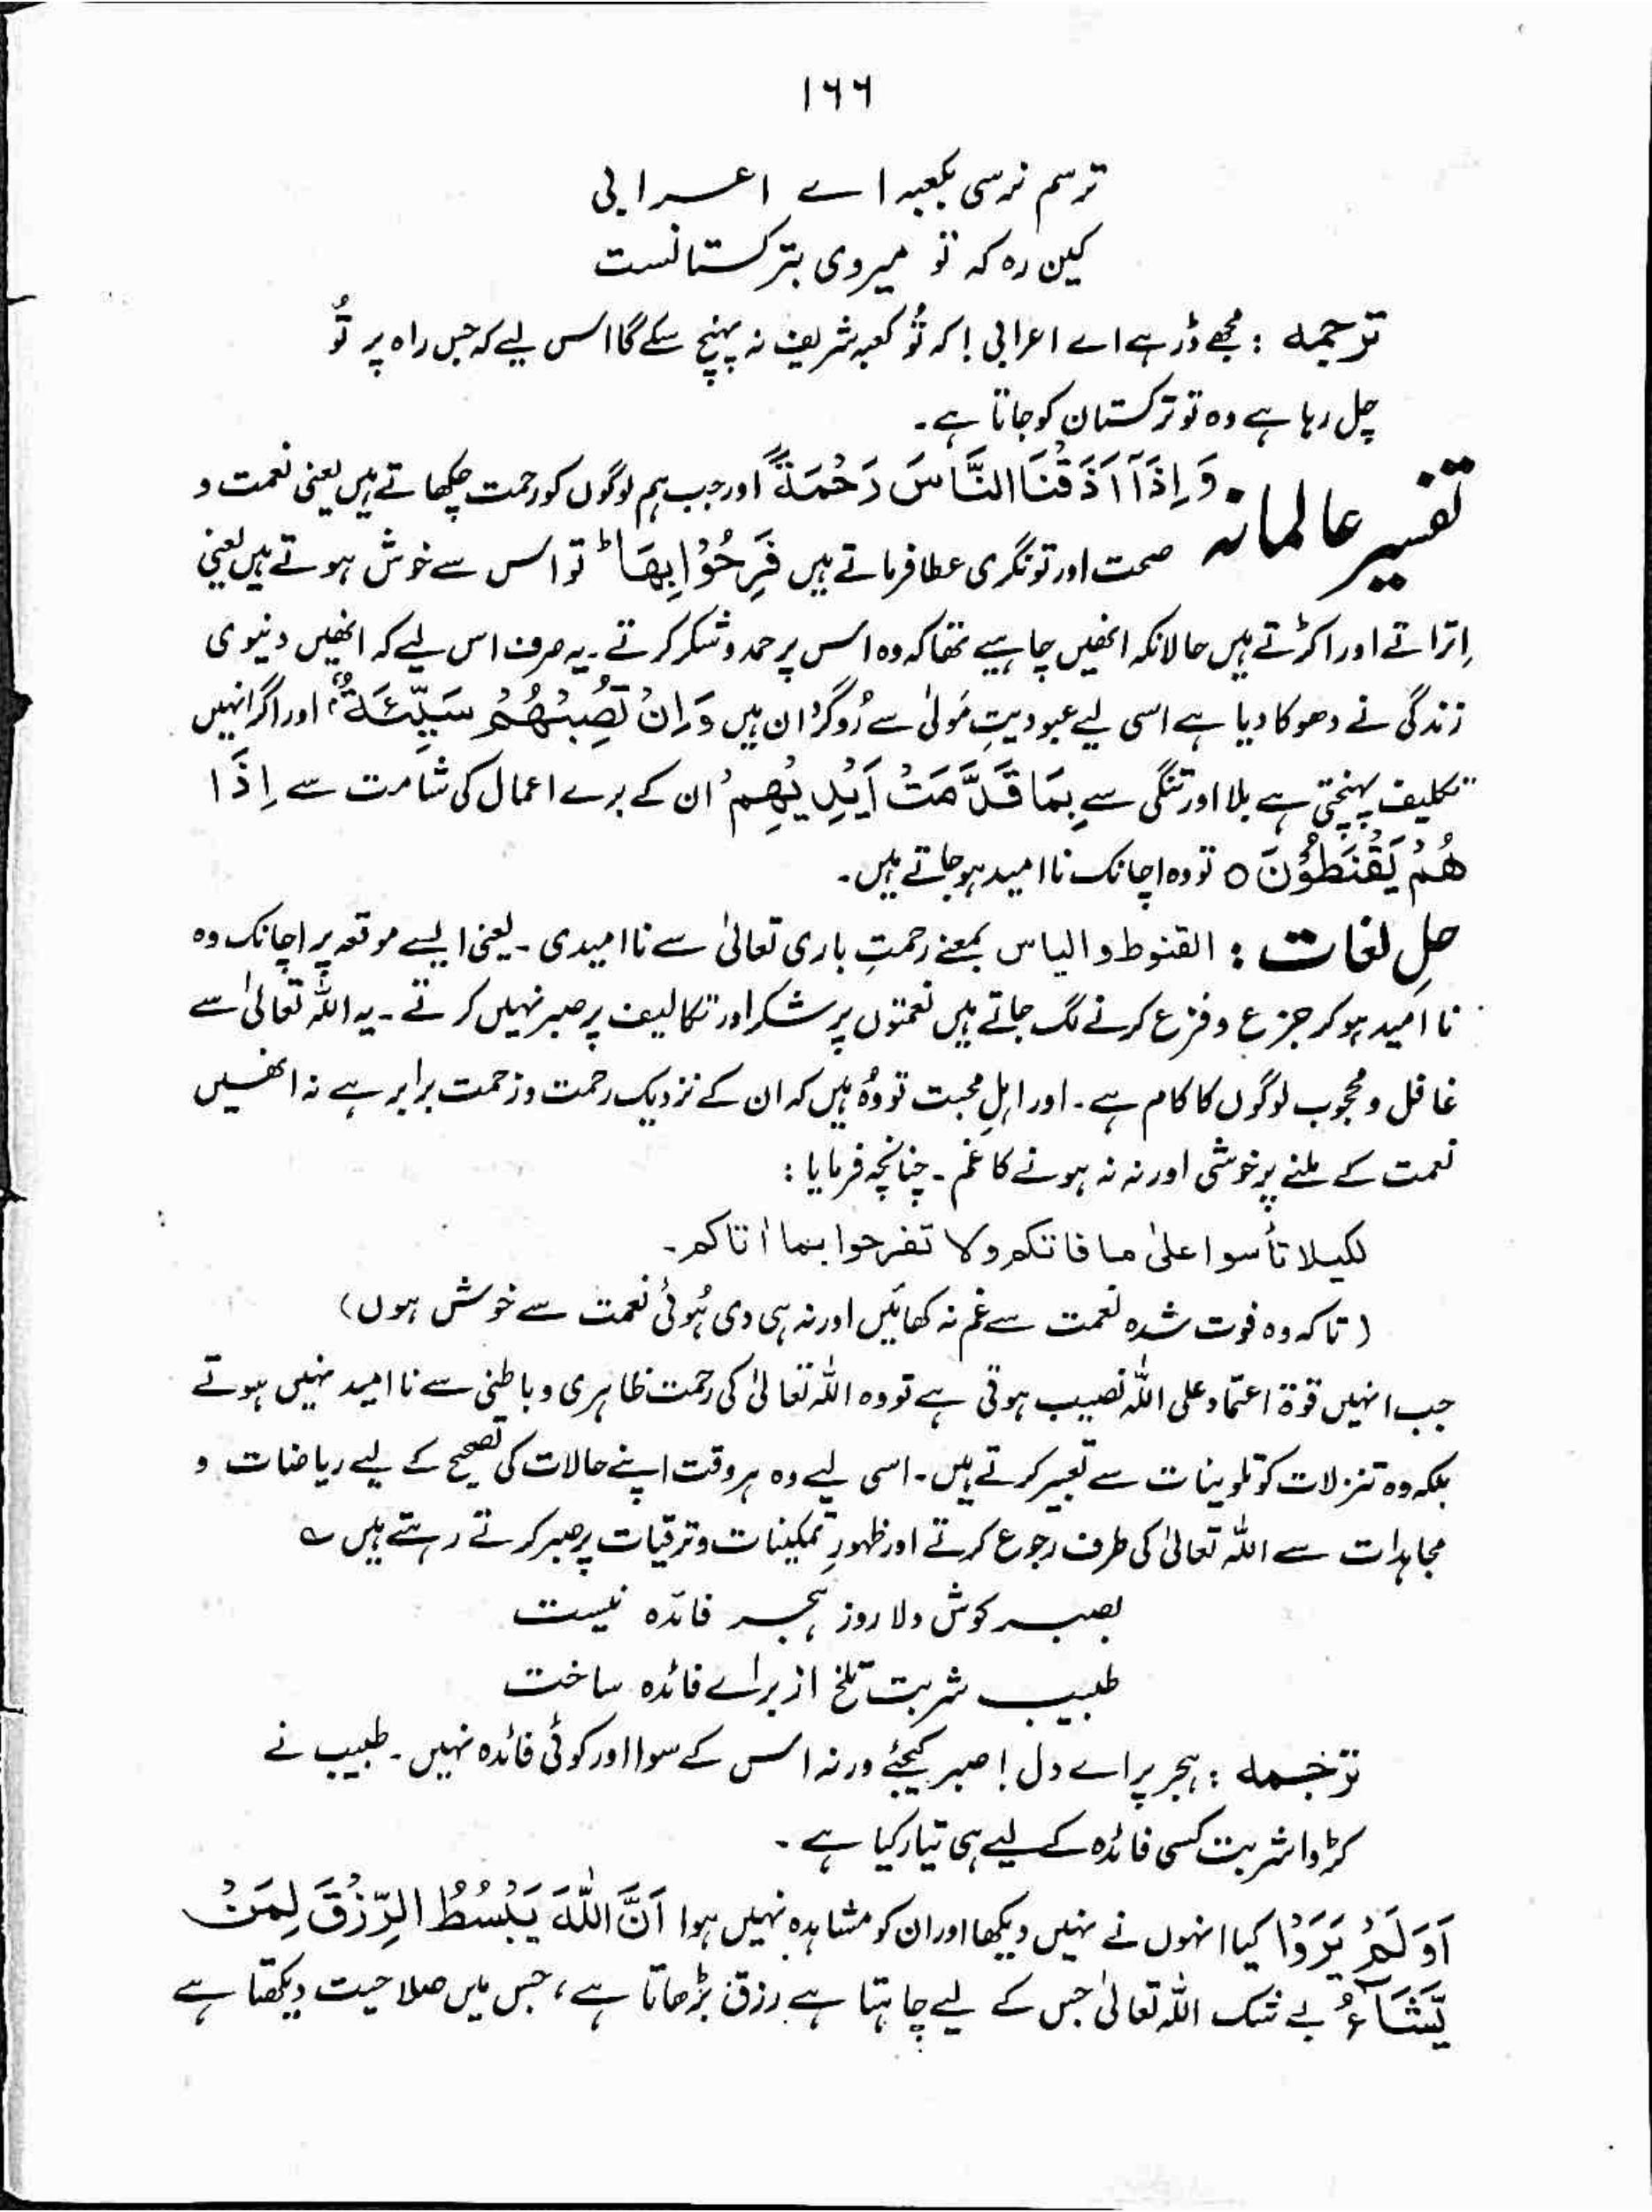 ۱۶۶
ترسم نرسی بکعبہ اے اعرابی
کین رہ کہ تو میروی بترکستانست
ترجمہ : مجھے ڈر ہے اے اعرابی ! کہ تُو کعبہ شریف نہ پہنچ سکے گا اس لیے کہ جس راہ پر تُو
چل رہا ہے وہ تو ترکستان کو جاتا ہے۔
تفسیر عالمانہ وَ اِذَآ اَذَقْنَا النَّاسَ رَحْمَةً اور جب ہم لوگوں کو رحمت چکھاتے ہیں یعنی نعمت و
صحت اور تونگری عطا فرماتے ہیں فَرِحُوْا بِهَا ؕ تو اس سے خوش ہوتے ہیں یعنی
اِتراتے اور اکڑتے ہیں حالانکہ انھیں چاہیے تھا کہ وہ اس پر حمد و شکر کرتے۔ یہ صرف اس لیے کہ انھیں دنیوی
زندگی نے دھوکا دیا ہے اسی لیے عبودیتِ مَولیٰ سے رُوگرداں ہیں وَ اِنْ تُصِبْهُمْ سَيِّئَةٌۢ اور اگر انہیں
تکلیف پہنچتی ہے بلا اور تنگی سے بِمَا قَدَّمَتْ اَيْدِيْهِمْ ان کے برے اعمال کی شامت سے اِذَا
هُمْ يَقْنَطُوْنَ ○ تو وہ اچانک ناامید ہو جاتے ہیں۔
حلِ لغات : القنوط و الیاس بمعنے رحمتِ باری تعالیٰ سے ناامیدی۔ یعنی ایسے موقعہ پر اچانک وہ
ناامید ہو کر جزع و فزع کرنے لگ جاتے ہیں نعمتوں پر شکر اور تکالیف پر صبر نہیں کرتے۔ یہ اللہ تعالیٰ سے
غافل و محجوب لوگوں کا کام ہے۔ اور اہلِ محبت تو وُہ ہیں کہ ان کے نزدیک رحمت و زحمت برابر ہے نہ انھیں
نعمت کے ملنے پر خوشی اور نہ نہ ہونے کا غم۔ چنانچہ فرمایا :
لکیلا تأسوا علیٰ ما فاتکم ولا تفرحوا بما اٰتاکم۔
(تاکہ وہ فوت شدہ نعمت سے غم نہ کھائیں اور نہ ہی دی ہُوئی نعمت سے خوش ہوں)
جب انہیں قوۃ اعتماد علی اللہ نصیب ہوتی ہے تو وہ اللہ تعالیٰ کی رحمت ظاہری و باطنی سے ناامید نہیں ہوتے
بلکہ وہ تنزلات کو تلوینات سے تعبیر کرتے ہیں۔ اسی لیے وہ ہر وقت اپنے حالات کی تصحیح کے لیے ریاضات و
مجاہدات سے اللہ تعالیٰ کی طرف رجوع کرتے اور ظہورِ تمکینات و ترقیات پر صبر کرتے رہتے ہیں ؎
بصبر کوش دلا روز ہجر فائدہ نیست
طبیب شربت تلخ از براے فائدہ ساخت
ترجمہ : ہجر پر اے دل ! صبر کیجئے ورنہ اس کے سوا اور کوئی فائدہ نہیں۔ طبیب نے
کڑوا شربت کسی فائدہ کے لیے ہی تیار کیا ہے۔
اَوَ لَمْ يَرَوْا کیا انہوں نے نہیں دیکھا اور ان کو مشاہدہ نہیں ہوا اَنَّ اللّٰهَ يَبْسُطُ الرِّزْقَ لِمَنْ
يَّشَآءُ بے شک اللہ تعالیٰ جس کے لیے چاہتا ہے رزق بڑھاتا ہے، جس میں صلاحیت دیکھتا ہے